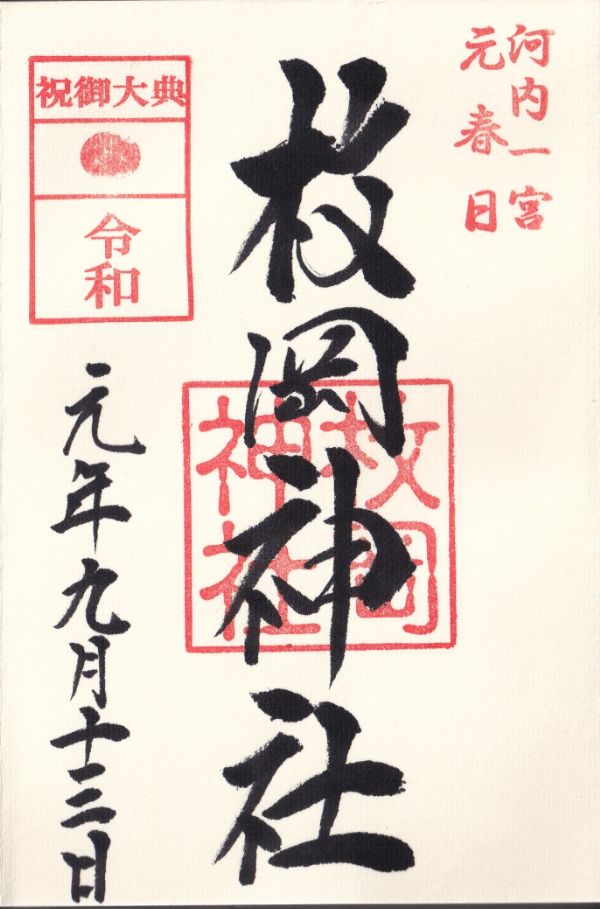 河内一宮
元春日
枚岡神社
枚岡
神社
祝御大典
令和
元年九月十三日